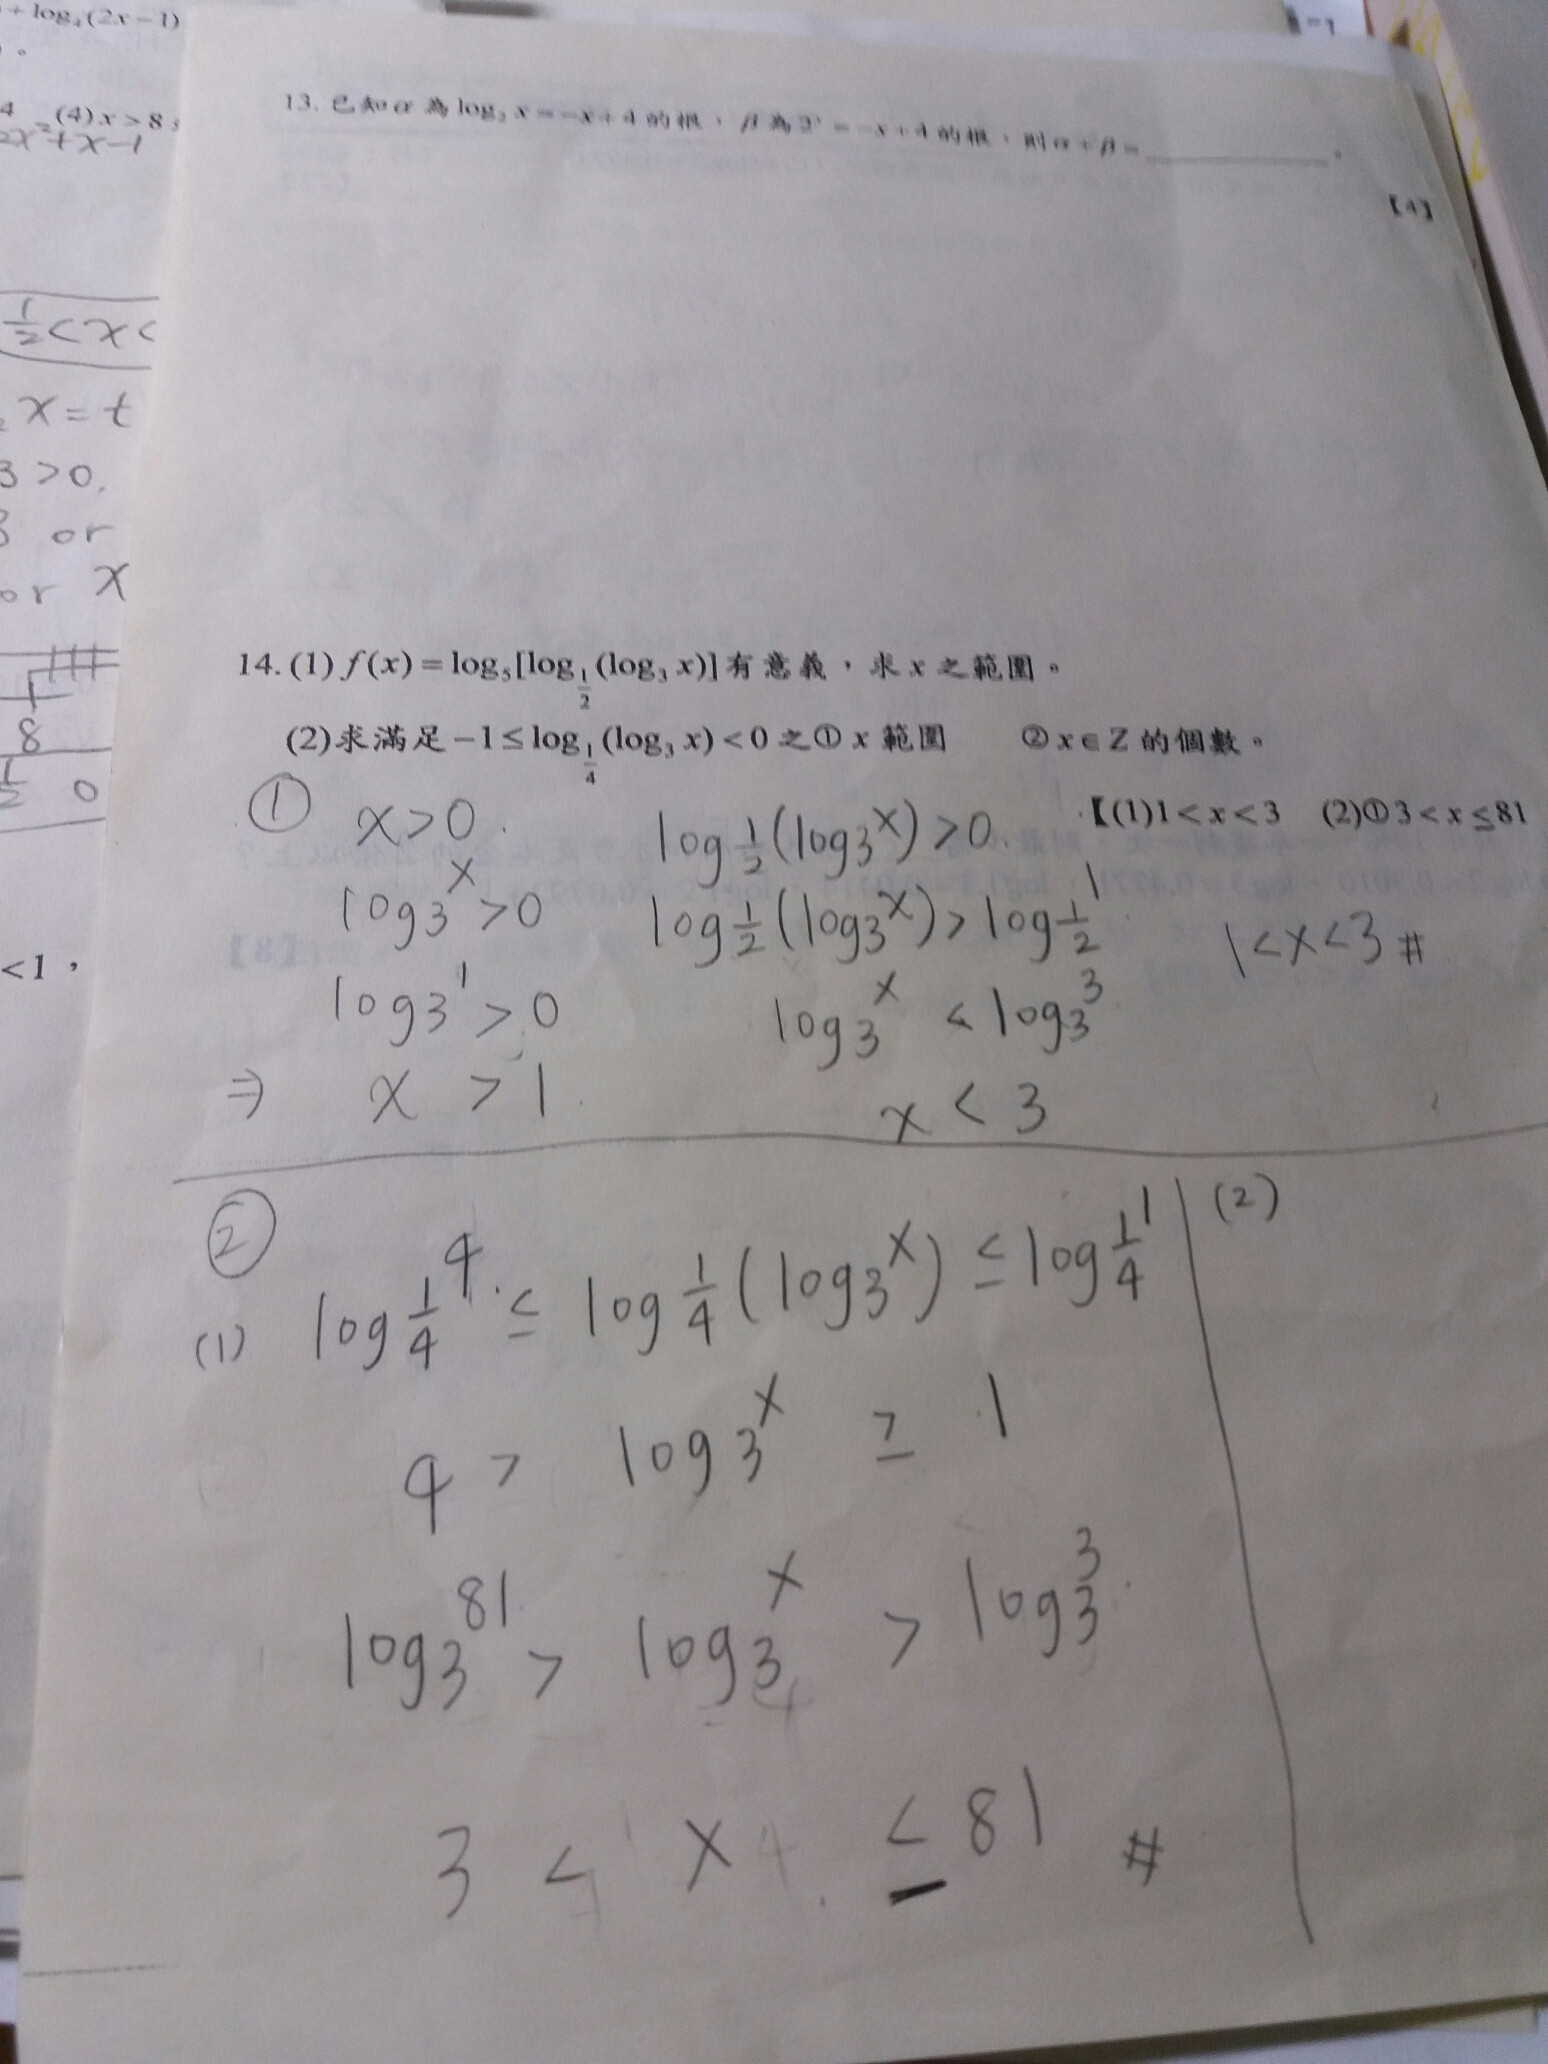 + log₄(2x−1)
4 (4) x > 8 ;
2x²+x−1
1/2 < x <
x = t
3 > 0,
or
or x
8
1/2 0
<1，
13. 已知α為log₂ x = −x+4的根，β為2ˣ = −x+4的根，則α+β= ________。
【4】
14. (1) f(x) = log₅[log_{1/2}(log₃ x)]有意義，求 x 之範圍。
(2)求滿足 −1 ≤ log_{1/4}(log₃ x) < 0 之① x 範圍 ② x ∈ Z 的個數。
【(1)1 < x < 3 (2)①3 < x ≤ 81
① x>0. log_{1/2}(log₃x) >0.
log₃x >0 log_{1/2}(log₃x) > log_{1/2}1 1<x<3 #
log₃1 > 0 log₃x < log₃3
⇒ x > 1. x < 3
②
(1) log_{1/4}4 ≤ log_{1/4}(log₃x) ≤ log_{1/4}1 (2)
4 > log₃x ≥ 1
log₃81 > log₃x > log₃3
3 < x ≤ 81 #